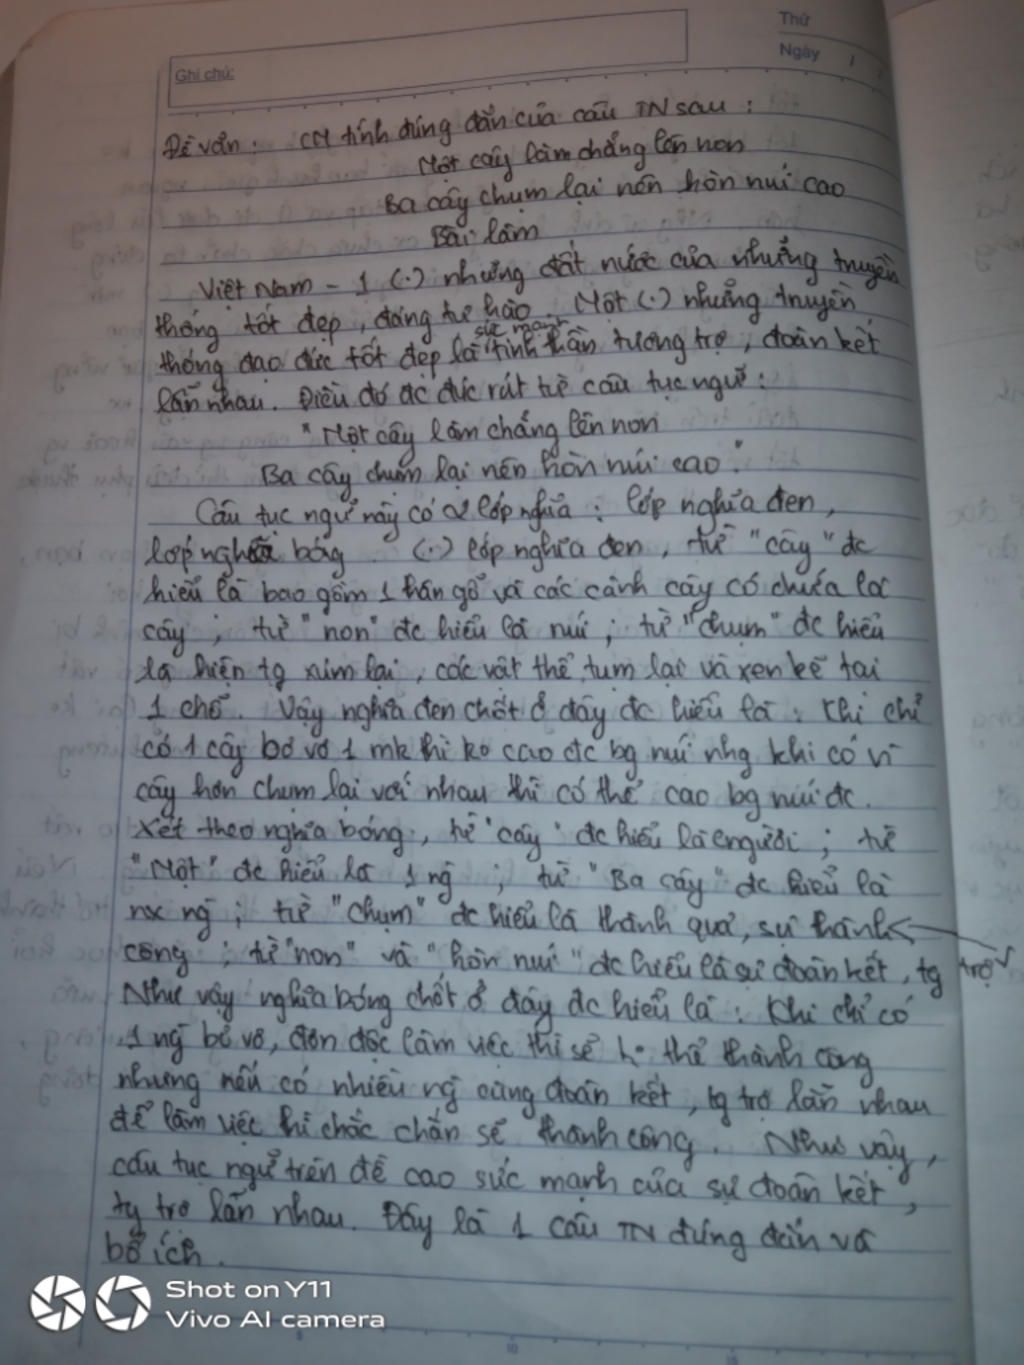 Thứ
Ngày / /
Ghi chú:
Đề văn: CM tính đúng đắn của câu TN sau:
Một cây làm chẳng lên non
Ba cây chụm lại nên hòn núi cao
Bài làm
Việt Nam - 1 (.) những đất nước của những truyền
thống tốt đẹp, đáng tự hào. Một (.) những truyền
thống đạo đức tốt đẹp là sức mạnh tinh thần tương trợ, đoàn kết
lẫn nhau. Điều đó đc đúc rút từ câu tục ngữ:
"Một cây làm chẳng lên non
Ba cây chụm lại nên hòn núi cao."
Câu tục ngữ này có 2 lớp nghĩa: lớp nghĩa đen,
lớp nghĩa bóng. (.) lớp nghĩa đen, từ "cây" đc
hiểu là bao gồm 1 thân gỗ và các cành cây có chứa lá
cây; từ "non" đc hiểu là núi; từ "chụm" đc hiểu
là hiện tg xúm lại, các vật thể tụm lại và xen kẽ tại
1 chỗ. Vậy nghĩa đen chốt ở đây đc hiểu là: Khi chỉ
có 1 cây bơ vơ 1 mk thì ko cao đc bg núi nhg khi có
cây hơn chụm lại với nhau thì có thể cao bg núi đc.
Xét theo nghĩa bóng, từ "cây" đc hiểu là người; từ
"Một" đc hiểu là 1 ng; từ "Ba cây" đc hiểu là
nx ng; từ "chụm" đc hiểu là thành quả, sự thành
công; từ "non" và "hòn núi" đc hiểu là sự đoàn kết, tg trợ
Như vậy nghĩa bóng chốt ở đây đc hiểu là: Khi chỉ có
1 ng bơ vơ, đơn độc làm việc thì sẽ k thể thành công
nhưng nếu có nhiều ng cùng đoàn kết, tg trợ lẫn nhau
để làm việc thì chắc chắn sẽ thành công. Như vậy,
câu tục ngữ trên đề cao sức mạnh của sự đoàn kết,
tg trợ lẫn nhau. Đây là 1 câu TN đúng đắn và
bổ ích.
Shot on Y11
Vivo AI camera